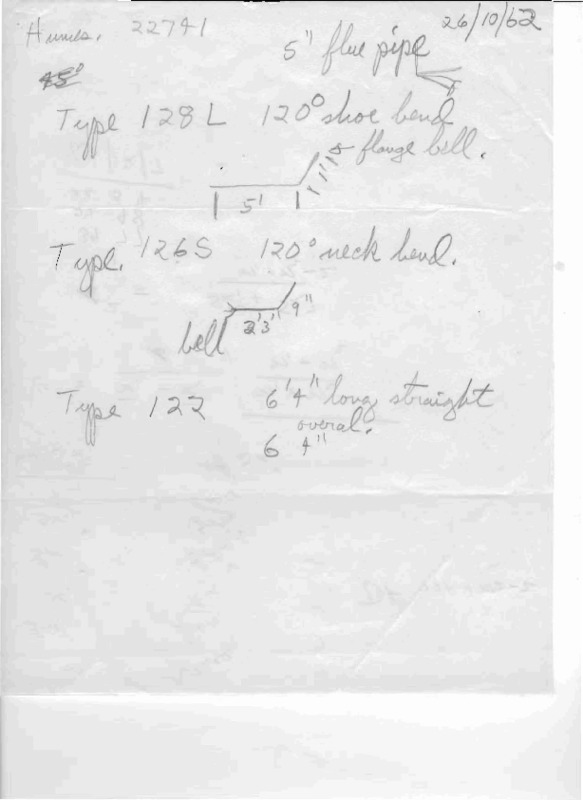 Humes. 22741 26/10/62
5" flue pipe
45°
Type 128L 120° shoe bend
flange bell.
5'
Type. 126S 120° neck bend.
9"
2'3"
bell
Type 122 6'4" long straight
overal.
6 4"